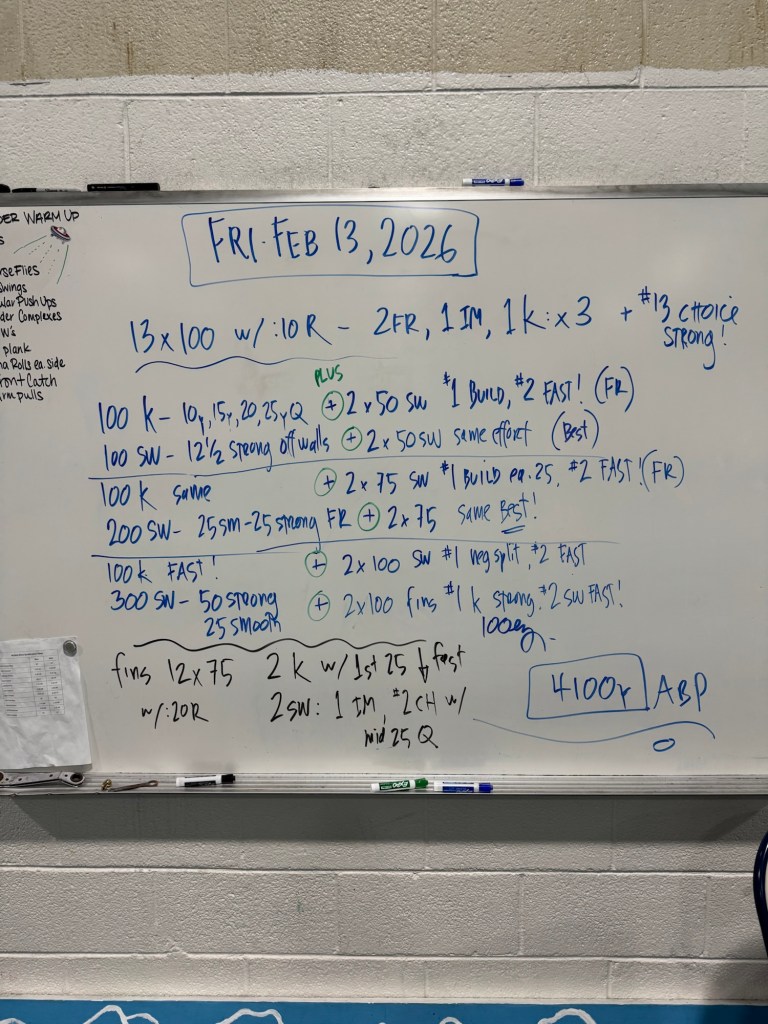 DER WARM UP
S
rse Flies
Swings
ular Push Ups
der Complexes
W's
plank
na Rolls ea. side
ront Catch
rm pulls
FRI. FEB 13, 2026
13x100 w/ :10 R - 2FR, 1 IM, 1 k : x 3 + #13 CHOICE
STRONG!
PLUS
100 k - 10y, 15y, 20, 25y Q + 2 x 50 SW #1 BUILD, #2 FAST! (FR)
100 SW - 12 1/2 strong off walls + 2x 50 SW same effort (Best)
100 k same + 2 x 75 SW #1 BUILD ea. 25, #2 FAST! (FR)
200 SW - 25 SM - 25 strong FR + 2x75 same Best!
100 k FAST! + 2x100 SW #1 neg split, #2 FAST
300 SW - 50 strong + 2x100 fins #1 k strong, #2 SW FAST!
25 smooth
100 ez
fins 12x75 2 k w/ 1st 25 ↓ fast
w/ :20 R 2 SW : 1 IM, #2 CH w/
mid 25 Q
4100y ABP
EXPO
EXPO